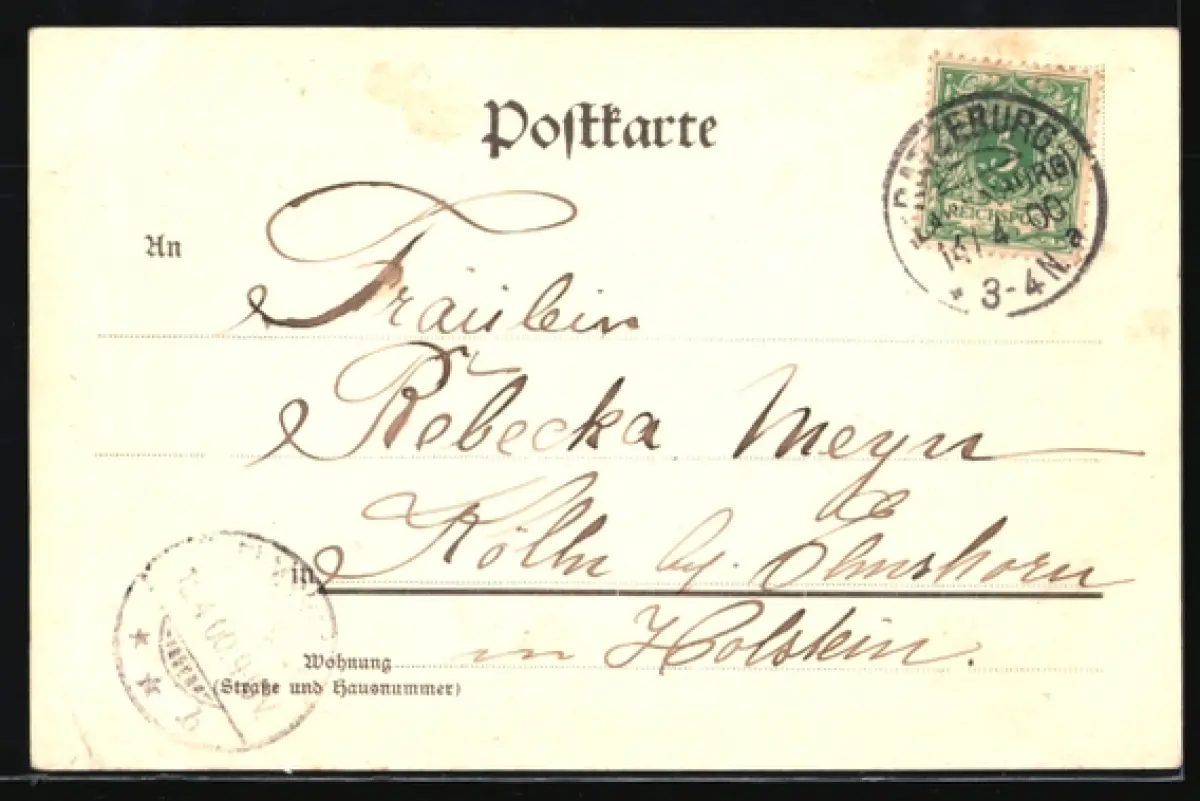 Postkarte
5
REICHSPOST
RATZEBURG
(LAUENBURG)
14/4 00
* 3-4 N. a
An
Fräulein
Rebecka Meyn
in Kölln by. Elmshorn
in Holstein.
Wohnung
(Straße und Hausnummer)
4 00
b